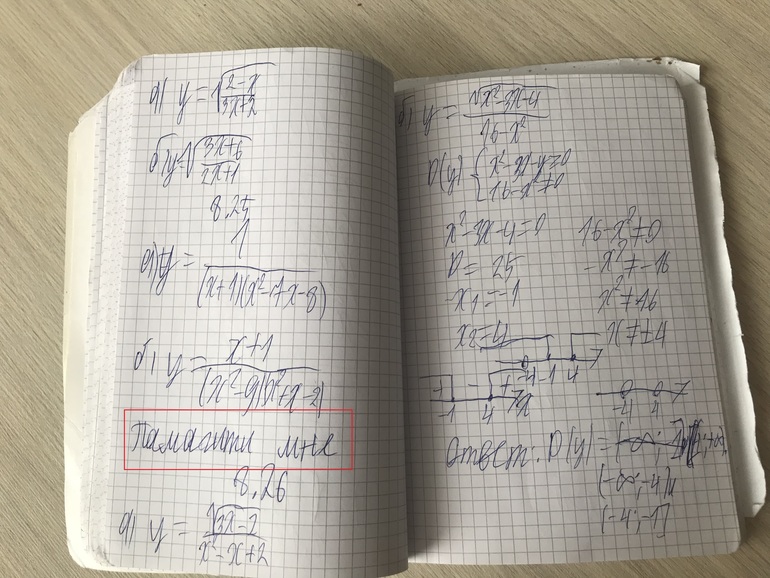 а) y = √(2-x / 3x+2)
б) y = √(3x+6 / 2x+1)
8.25
а) y = 1 / (x+1)(x²-7x-8)
б) y = x+1 / (x²-9)(x²+x-2)
Памагити мне
8.26
а) y = √3x-2 / x²-x+2
б) y = √x²-3x-4 / 16-x²
D(y) { x²-3x-4≥0
16-x²≠0
x²-3x-4=0 16-x²≠0
D = 25 -x²≠-16
x1=-1 x²≠16
x2=4 x≠±4
-4 -1 4
+ - + x
-1 4
-4 4
Ответ: D(y) =
(-∞;-4)∪
(-4;-1]